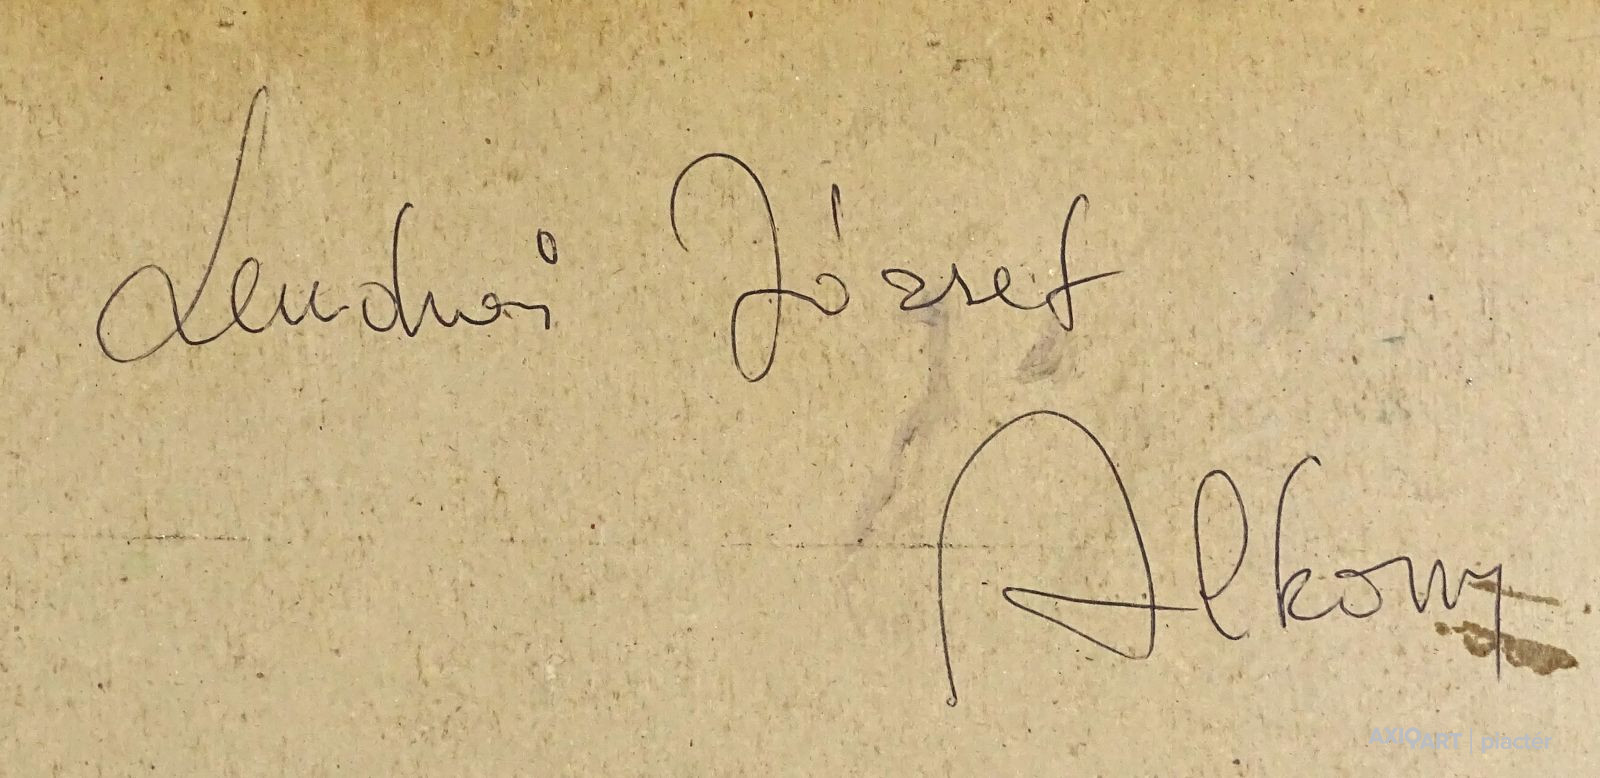 Lendvai József
Alkony
AXIOART | piactér